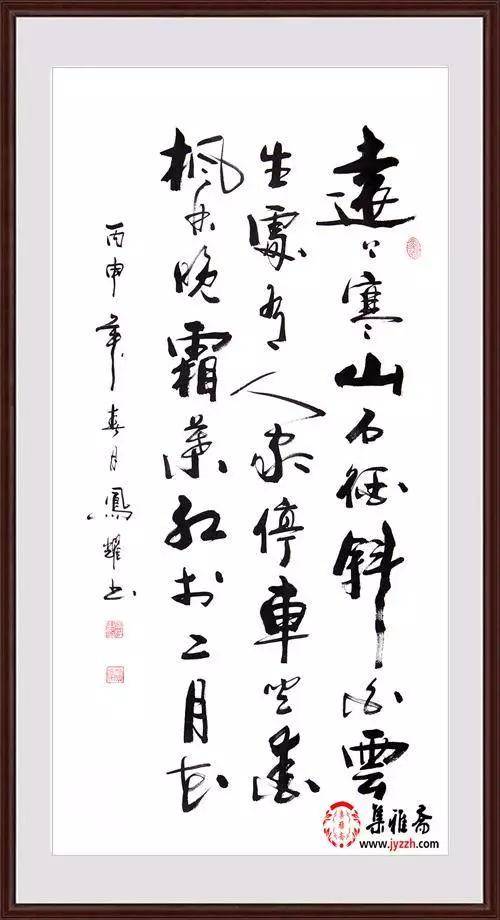 遠上寒山石徑斜白雲
生處有人家停車坐愛
楓林晚霜葉紅於二月花
丙申年春月鳳耀書
集雅斋
www.jyzzh.com